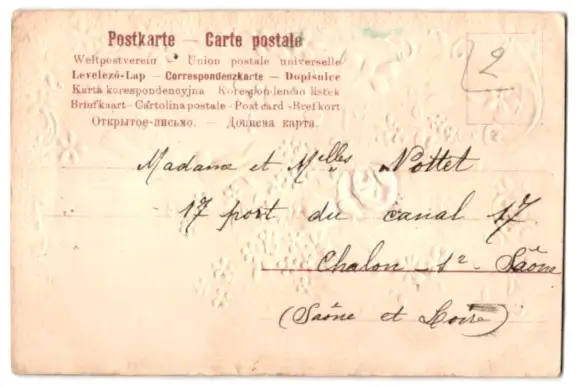 Postkarte — Carte postale
Weltpostverein — Union postale universelle
Levelező-Lap — Correspondenzkarte — Dopisnice
Karta korespondencyjna Korespondenčni listek
Briefkaart - Cartolina postale - Post card - Brefkort
Открытое-письмо. — Дописна карта.
2
Madame et Melles Nottet
17 port du canal 17
Chalon - s² - Saône
(Saône et Loire)